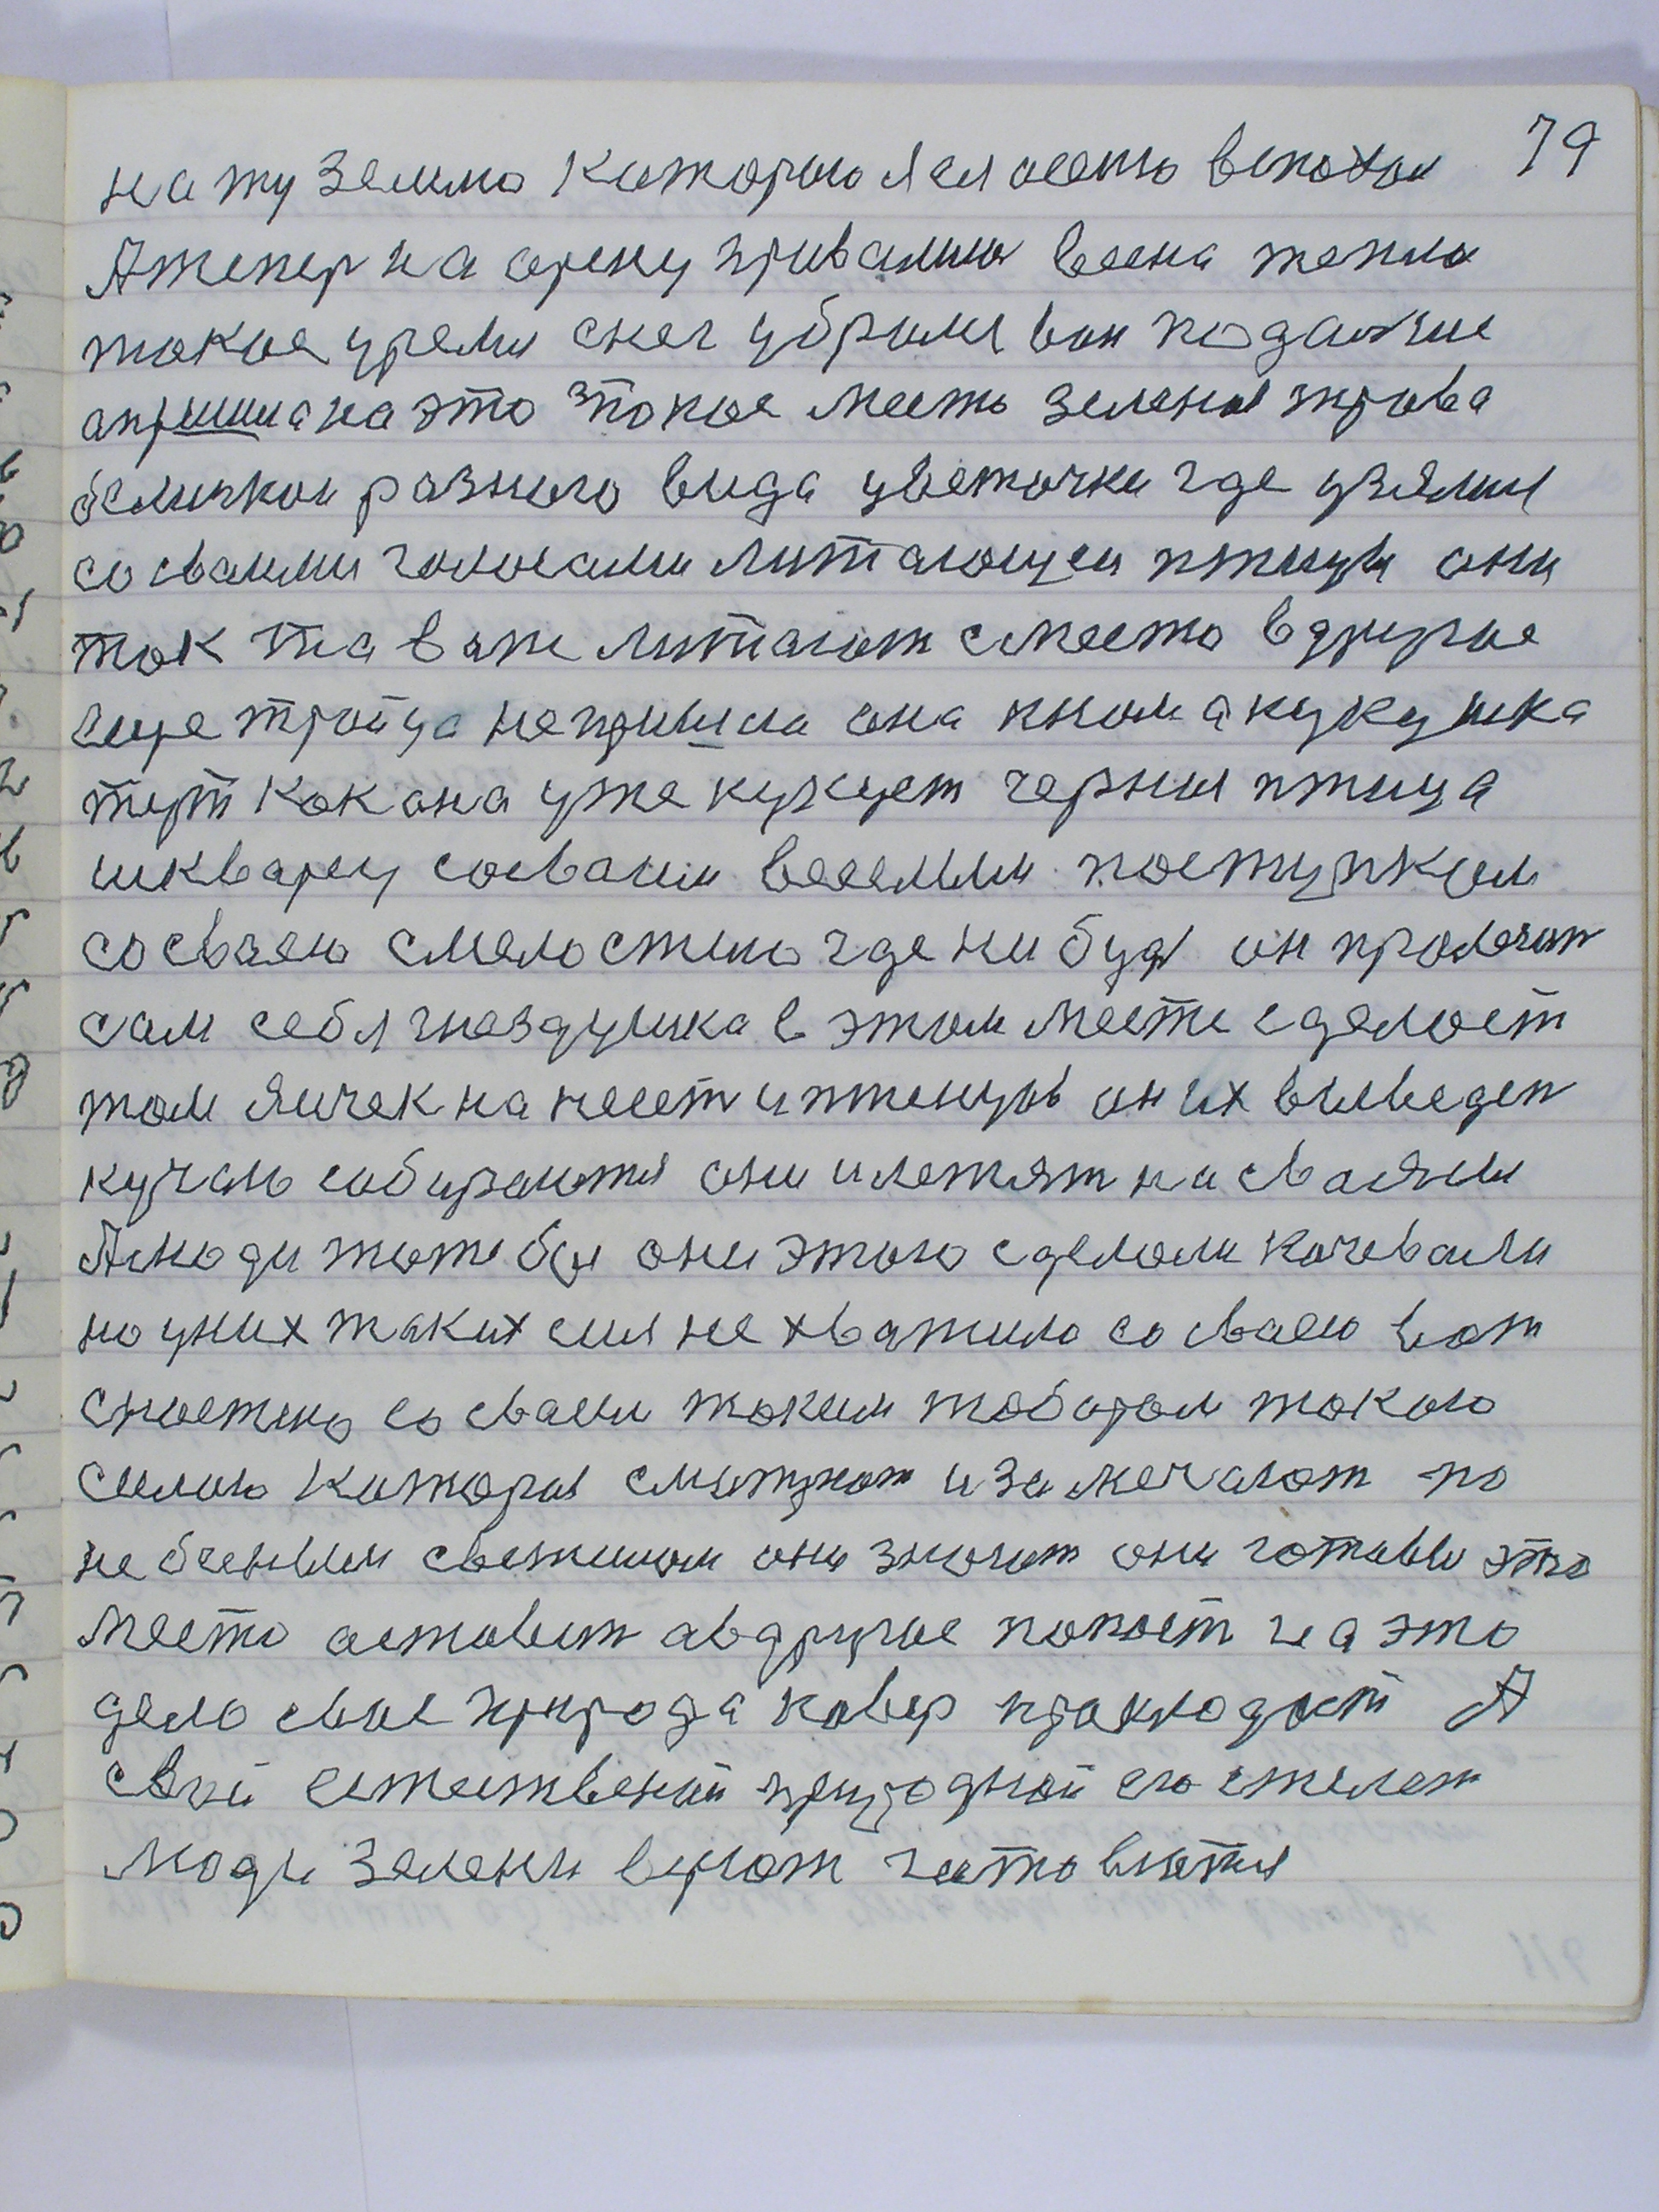 79
на ту землю которою я ся осеню вспохал
А тепер на арену привалила весна тепло
токое уремя снег убрала вон подальше
а пришла на это токое место зеленая трова
белишкои разного вида цветочки где узялись
со сваими голосами литающеи птицы они
ток тса важе литают с место в другое
еще тройца не пришла она кном а кукушка
тут как она уже кукует черная птица
шкварец со сваим веселым поступком
со сваею смелостью где нибудь он пролезит
сам себя гнездушка в этом месте сделоет
том яичек на несет и птенцов он их выведеп
кучаю собираются они и летят на сваяси
А люди тоже бы они этого сделоли кочевали
но у них таких сил не хватило со сваею вот
снастью со сваем токим табором токою
силою которыя смытрют и замечают по
небесным светилом они значит они готовы это
место оставит а в другое попаст на это
дело свое природа ковер прокладоет А
свой естественый природной его стелет
люди зелень в урют гатовются